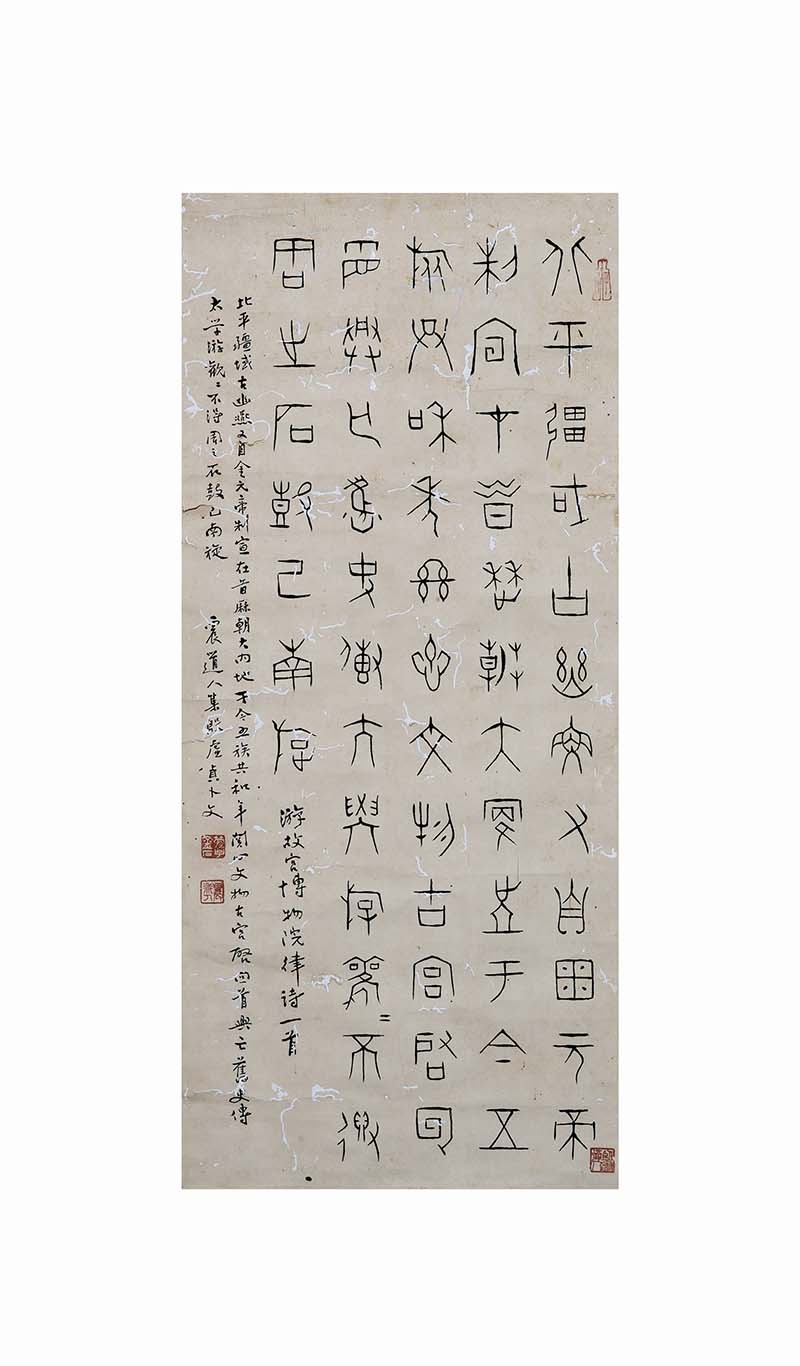 北平疆域古幽燕又自金元帝
制宣在昔歷朝大内地于今五
族共和年關心文物古宮啓回
首興亡舊史傳太學游觀=不得
周之石鼓已南旋
游故宫博物院律诗一首
北平疆域古幽燕又自金元帝制宣在昔歷朝大内地于今五族共和年關心文物古宮啓回首興亡舊史傳
太学游觀=不得周之石鼓已南旋
震道人集殷虛貞卜文